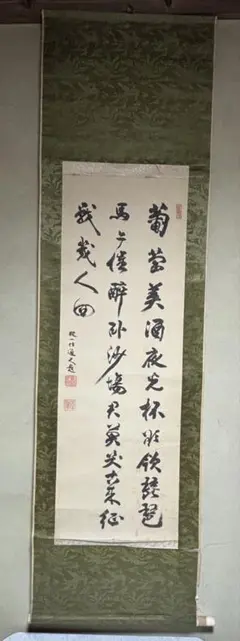 葡萄美酒夜光杯欲飲琵琶
馬上催醉臥沙場君莫笑古来征
戰幾人回
從一位通久